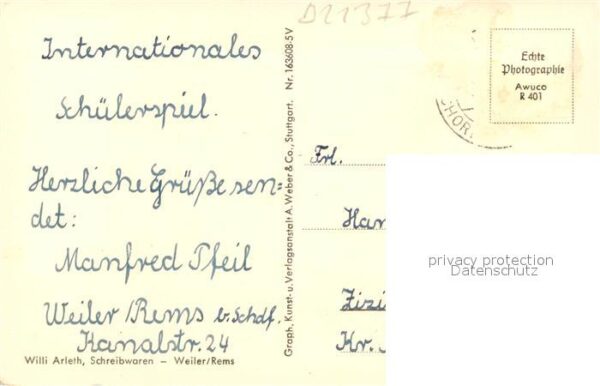 D21377
Internationales
Schülerspiel.
Herzliche Grüße sen=
det:
Manfred Pfeil
Weiler/Rems b. Schdf.
Kanalstr. 24
Willi Arleth, Schreibwaren – Weiler/Rems
Graph. Kunst- u. Verlagsanstalt A. Weber & Co., Stuttgart. Nr. 163608-5V
Echte
Photographie
Awuco
R 401
CHOR
Frl.
Han
Zizi
Kr.
privacy protection
Datenschutz